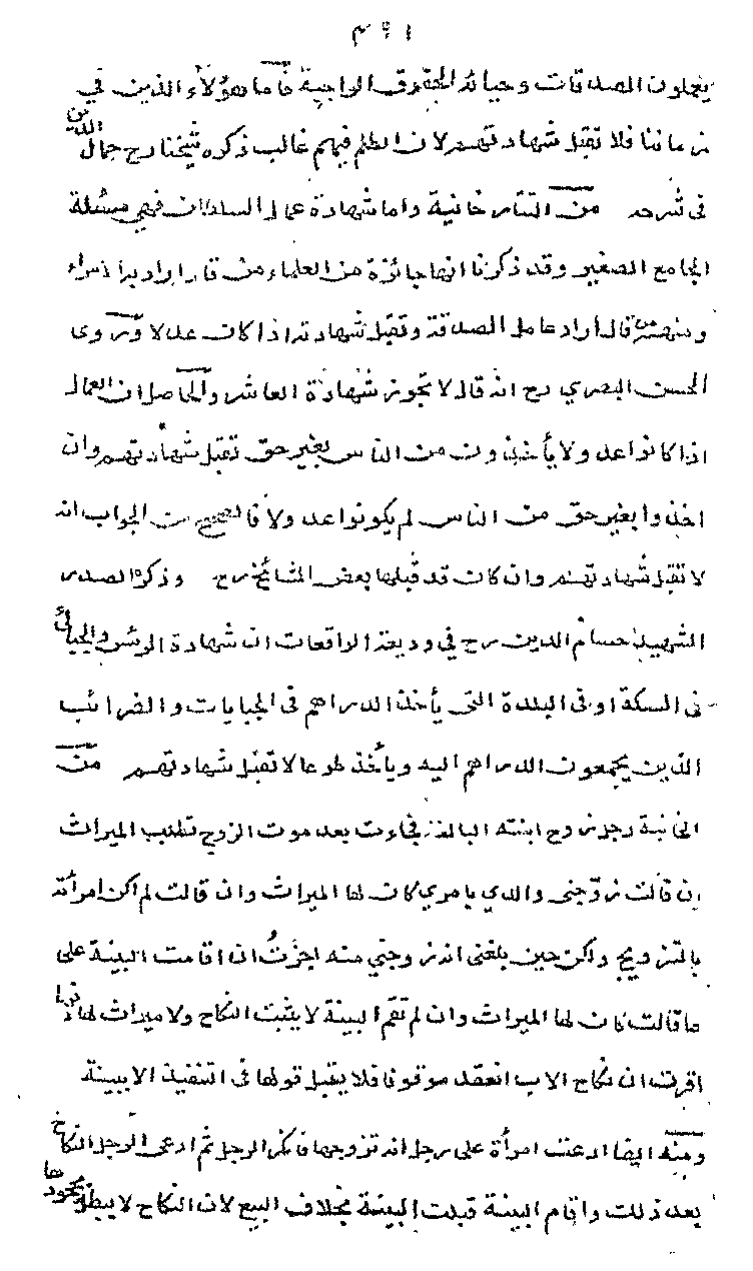 يعملون الصدقات وجباية الحقوق الواجبة فأما هؤلاء الذين في
زماننا فلا تقبل شهادتهم لان الظلم فيهم غالب ذكره شيخنا رح جمال الدين
في شرحه من التتارخانية واما شهادة عمال السلطان فهي مسئلة
الجامع الصغير وقد ذكرنا انها جائزة من العلماء من قال اراد به الامراء
ومنهم من قال اراد عامل الصدقة وتقبل شهادته اذا كان عدلا وروى
الحسن البصري رح انه قال لا تجوز شهادة العاشر والحاصل ان العمال
اذا كانوا عدولا يأخذون من الناس بغير حق تقبل شهادتهم وان
اخذوا بغير حق من الناس لم يكونوا عدولا فالصحيح من الجواب انه
لا تقبل شهادتهم وان كان قد قبلها بعض المشائخ رح وذكر الصدر
الشهيد حسام الدين رح في وديعة الواقعات ان شهادة الرئس والجبائي
فى السكة او فى البلدة التى يأخذ الدراهم فى الجبايات والضرائب
الذين يجمعون الدراهم اليه ويأخذ طوعا لا تقبل شهادتهم من
الخانية رجل زوج ابنته البالغة فجاءت بعد موت الزوج تطلب الميراث
ان قالت زوجنى والدي بامري كان لها الميراث وان قالت لم اكن امرأته
بالتزويج ولكن حين بلغنى انه زوجني منه اجزتُ ان اقامت البينة على
ما قالت كان لها الميراث وان لم تقم البينة لا يثبت النكاح ولا ميراث لها لانها
اقرت ان نكاح الاب انعقد موقوفا فلا يقبل قولها فى التنفيذ الا ببينة
ومنه ايضا ادعت امرأة على رجل انه تزوجها فانكر الرجل ثم ادعى الرجل النكاح
بعد ذلك واقام البينة قبلت البينة بخلاف البيع لان النكاح لا يبطل بجحودها